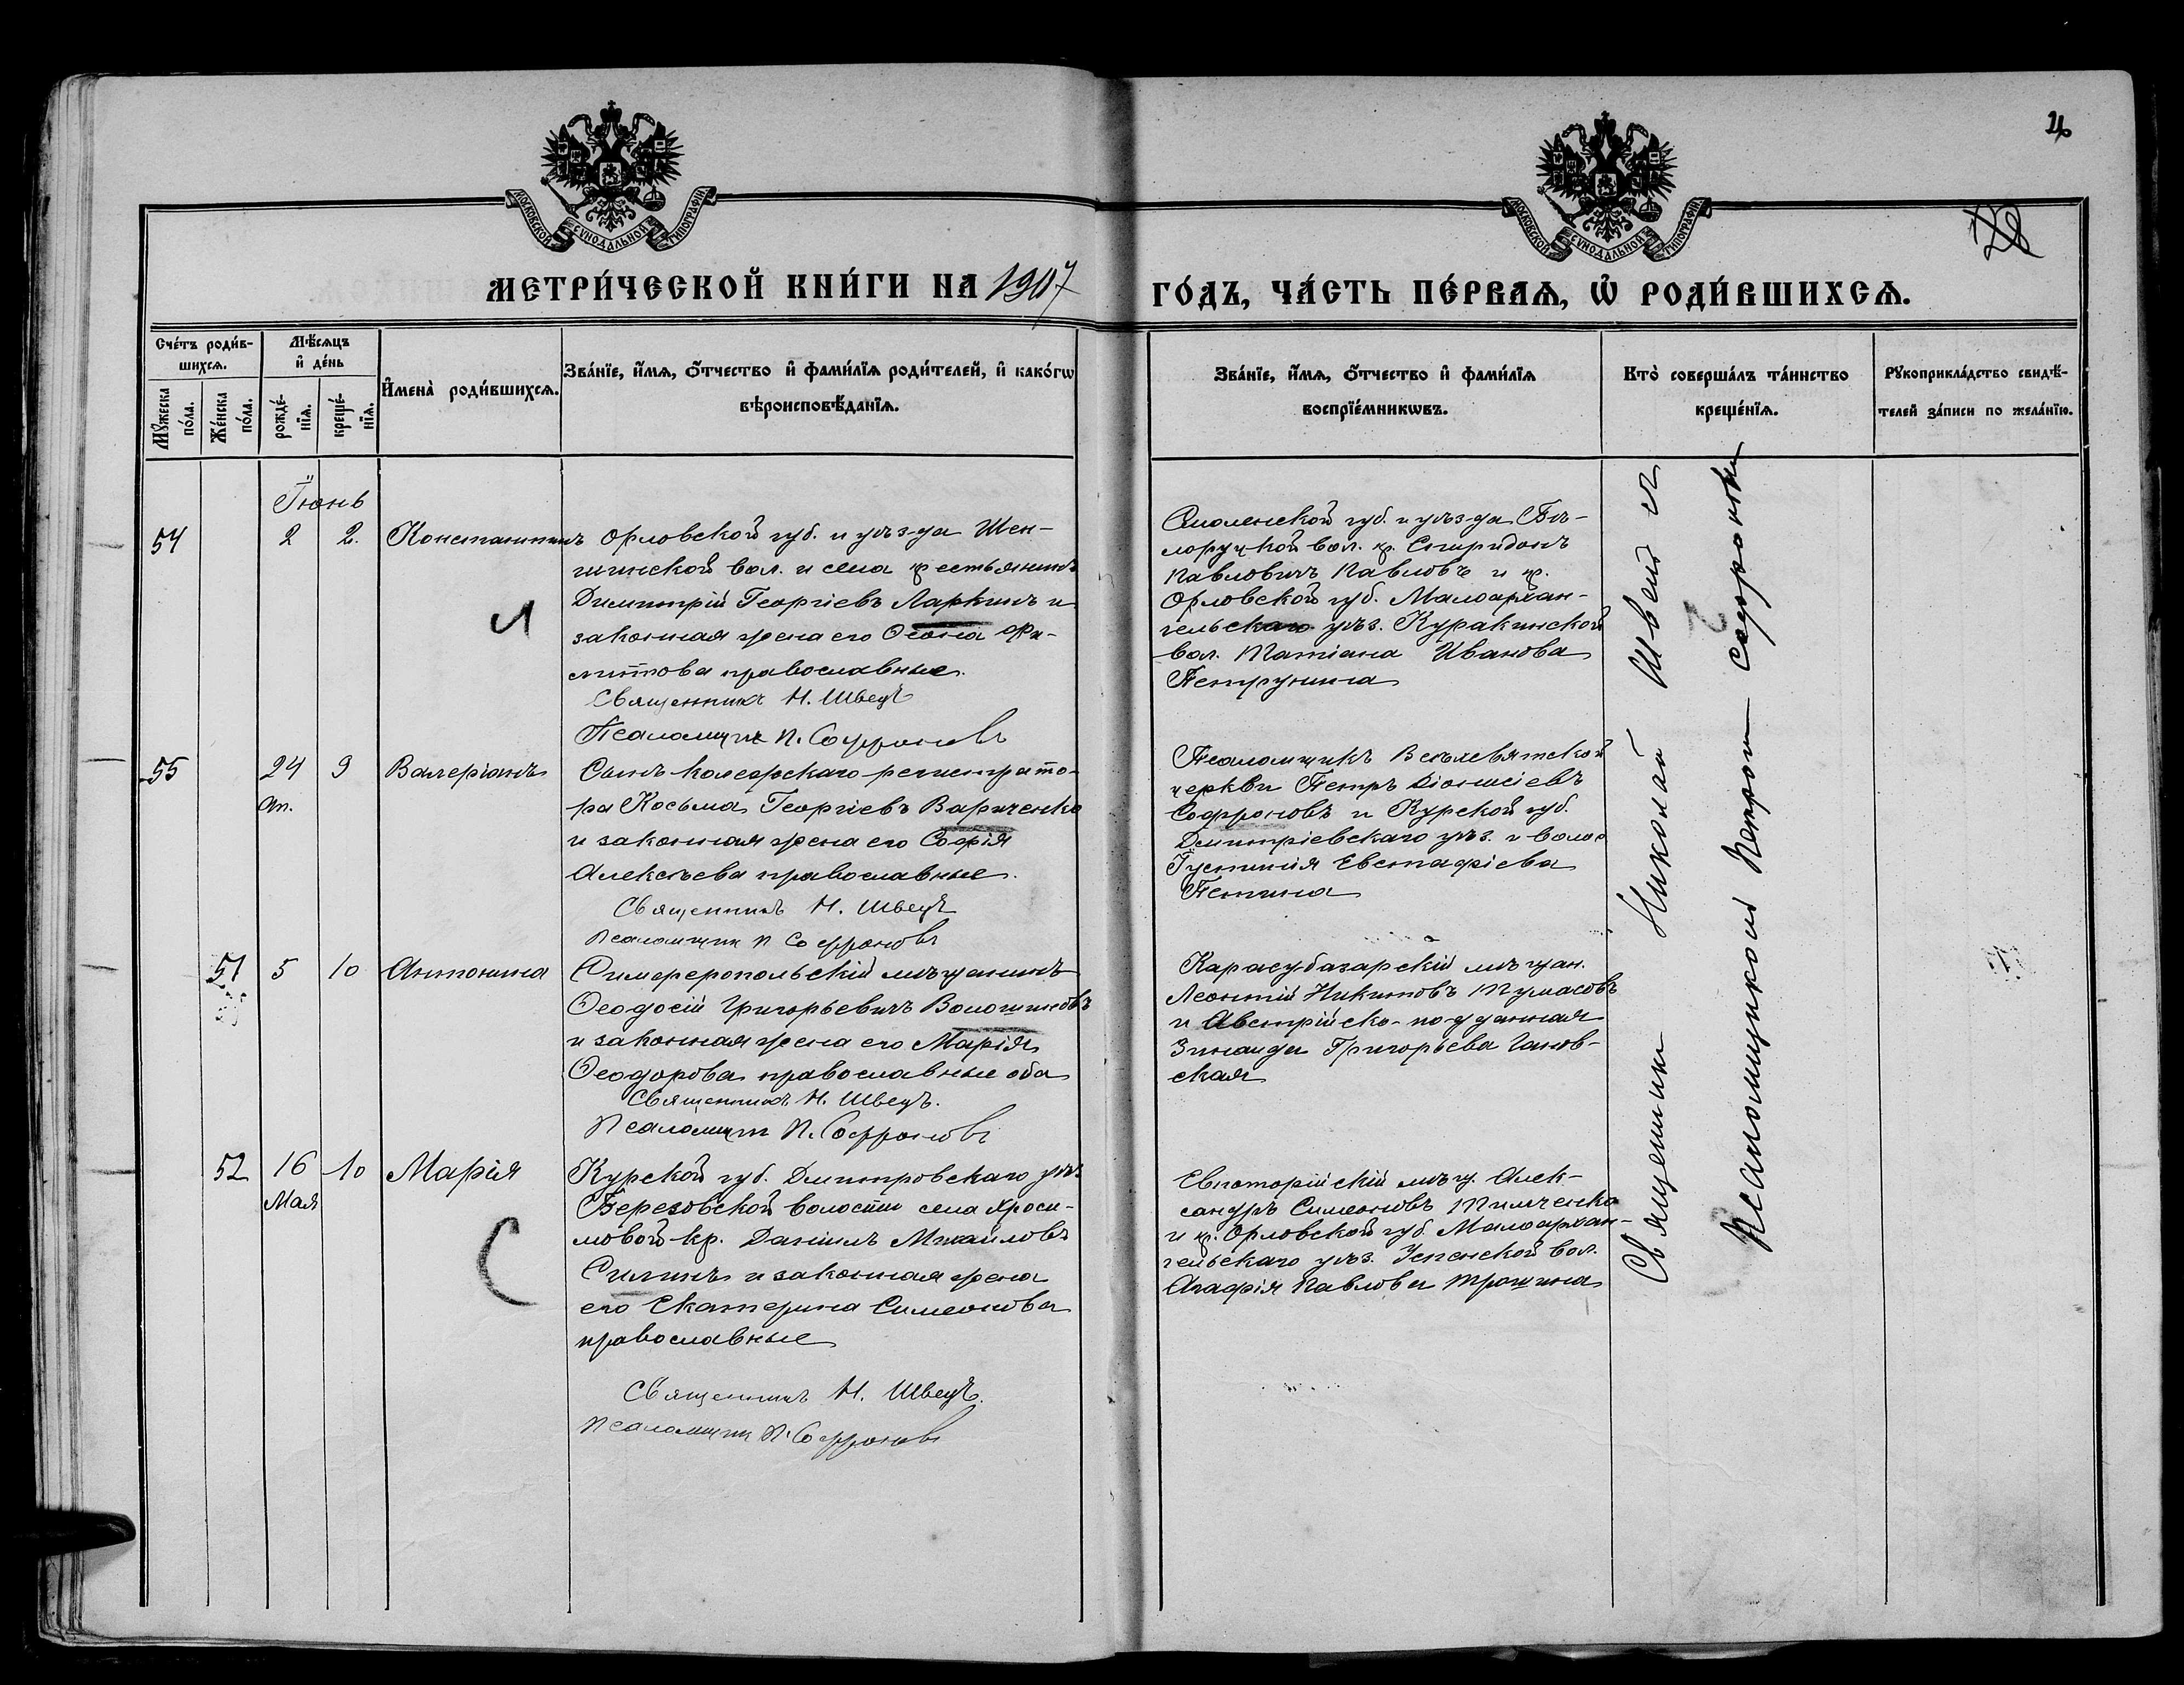 26
28
МОСКОВСКОЙ СѴНОДАЛЬНОЙ ТИПОГРАФІИ
МОСКОВСКОЙ СѴНОДАЛЬНОЙ ТИПОГРАФІИ
МЕТРИ́ЧЕСКОЙ КНИ́ГИ НА 1907
ГО́ДЪ, ЧА́СТЬ ПЕ́РВАѦ, Ѡ҆ РОДИ́ВШИХСѦ.
Сче́тъ роди́в-
шихсѧ.
Мꙋ́жеска по́ла.
Же́нска по́ла.
Мѣ́сѧцъ
и҆ де́нь
рожде́-
нїѧ.
креще́-
нїѧ.
И҆мена̀ роди́вшихсѧ.
Зва́нїе, и҆́мѧ, ѻ҆́тчество и҆ фами́лїѧ роди́телей, и҆ како́гѡ
вѣроисповѣ́данїѧ.
Зва́нїе, и҆́мѧ, ѻ҆́тчество и҆ фами́лїѧ
воспрїе́мникѡвъ.
Кто̀ соверша́лъ та́инство
креще́нїѧ.
Рꙋкоприкла́дство свидѣ́-
телей за́писи по жела́нїю.
Іюнь
54
2
2.
Константинъ
Орловской губ. и уѣзда
вол. и села крестьянинъ
Димитрій Георгіевъ Ларкинъ и
законная жена его
православные.
Священникъ Н. Швецъ
Псаломщик П. Софроновъ
Смоленской губ. и уѣзда Бѣ-
лоруцкой вол. кр. Спиридонъ
Павловичъ Павловъ и кр.
Орловской губ. Малоархан-
гельскаго уѣз. Куракинской
вол. Татіана Иванова
Петрунина
55
24
Ап.
9
Валеріанъ
Сынъ колежскаго регистрато-
ра Косьма Георгіевъ Вариченко
и законная жена его Софія
Алексѣева православные.
Священникъ Н. Швецъ
Псаломщик П Софроновъ
Псаломщикъ Всѣхсвятской
церкви Петръ Діонисіевъ
Софроновъ и Курской губ.
Дмитріевскаго уѣз. и волос
Іустинія Евстафіева
Петина
51
5
10
Антонина
Симферопольскій мѣщанинъ
Ѳеодосій Григорьевичъ Волошиновъ
и законная жена его Марія
Ѳеодорова православные оба
Священникъ Н. Швецъ.
Псаломщик П. Софроновъ
Карасубазарскій мѣщан.
Леонтій Никитовъ Тумасовъ
и Австрійско-подданная
Зинаида Григорьева
ская
52
16
Мая
10
Марія
Курской губ. Дмитровскаго уѣз.
Березовской волости села Хроси-
мовой кр. Даніилъ Михайловъ
Силинъ и законная жена
его Екатерина Симеонова
православные
Священникъ Н. Швецъ.
Псаломщик П. Софроновъ
Евпаторійскій мѣщ. Алек-
сандръ Симеоновъ Тимченко
и кр. Орловской губ. Малоархан-
гельскаго уѣз. Успенской вол.
Агафія Павлова Трошина
Священник Николай Швец с
Псаломщиком Петром Софроновым